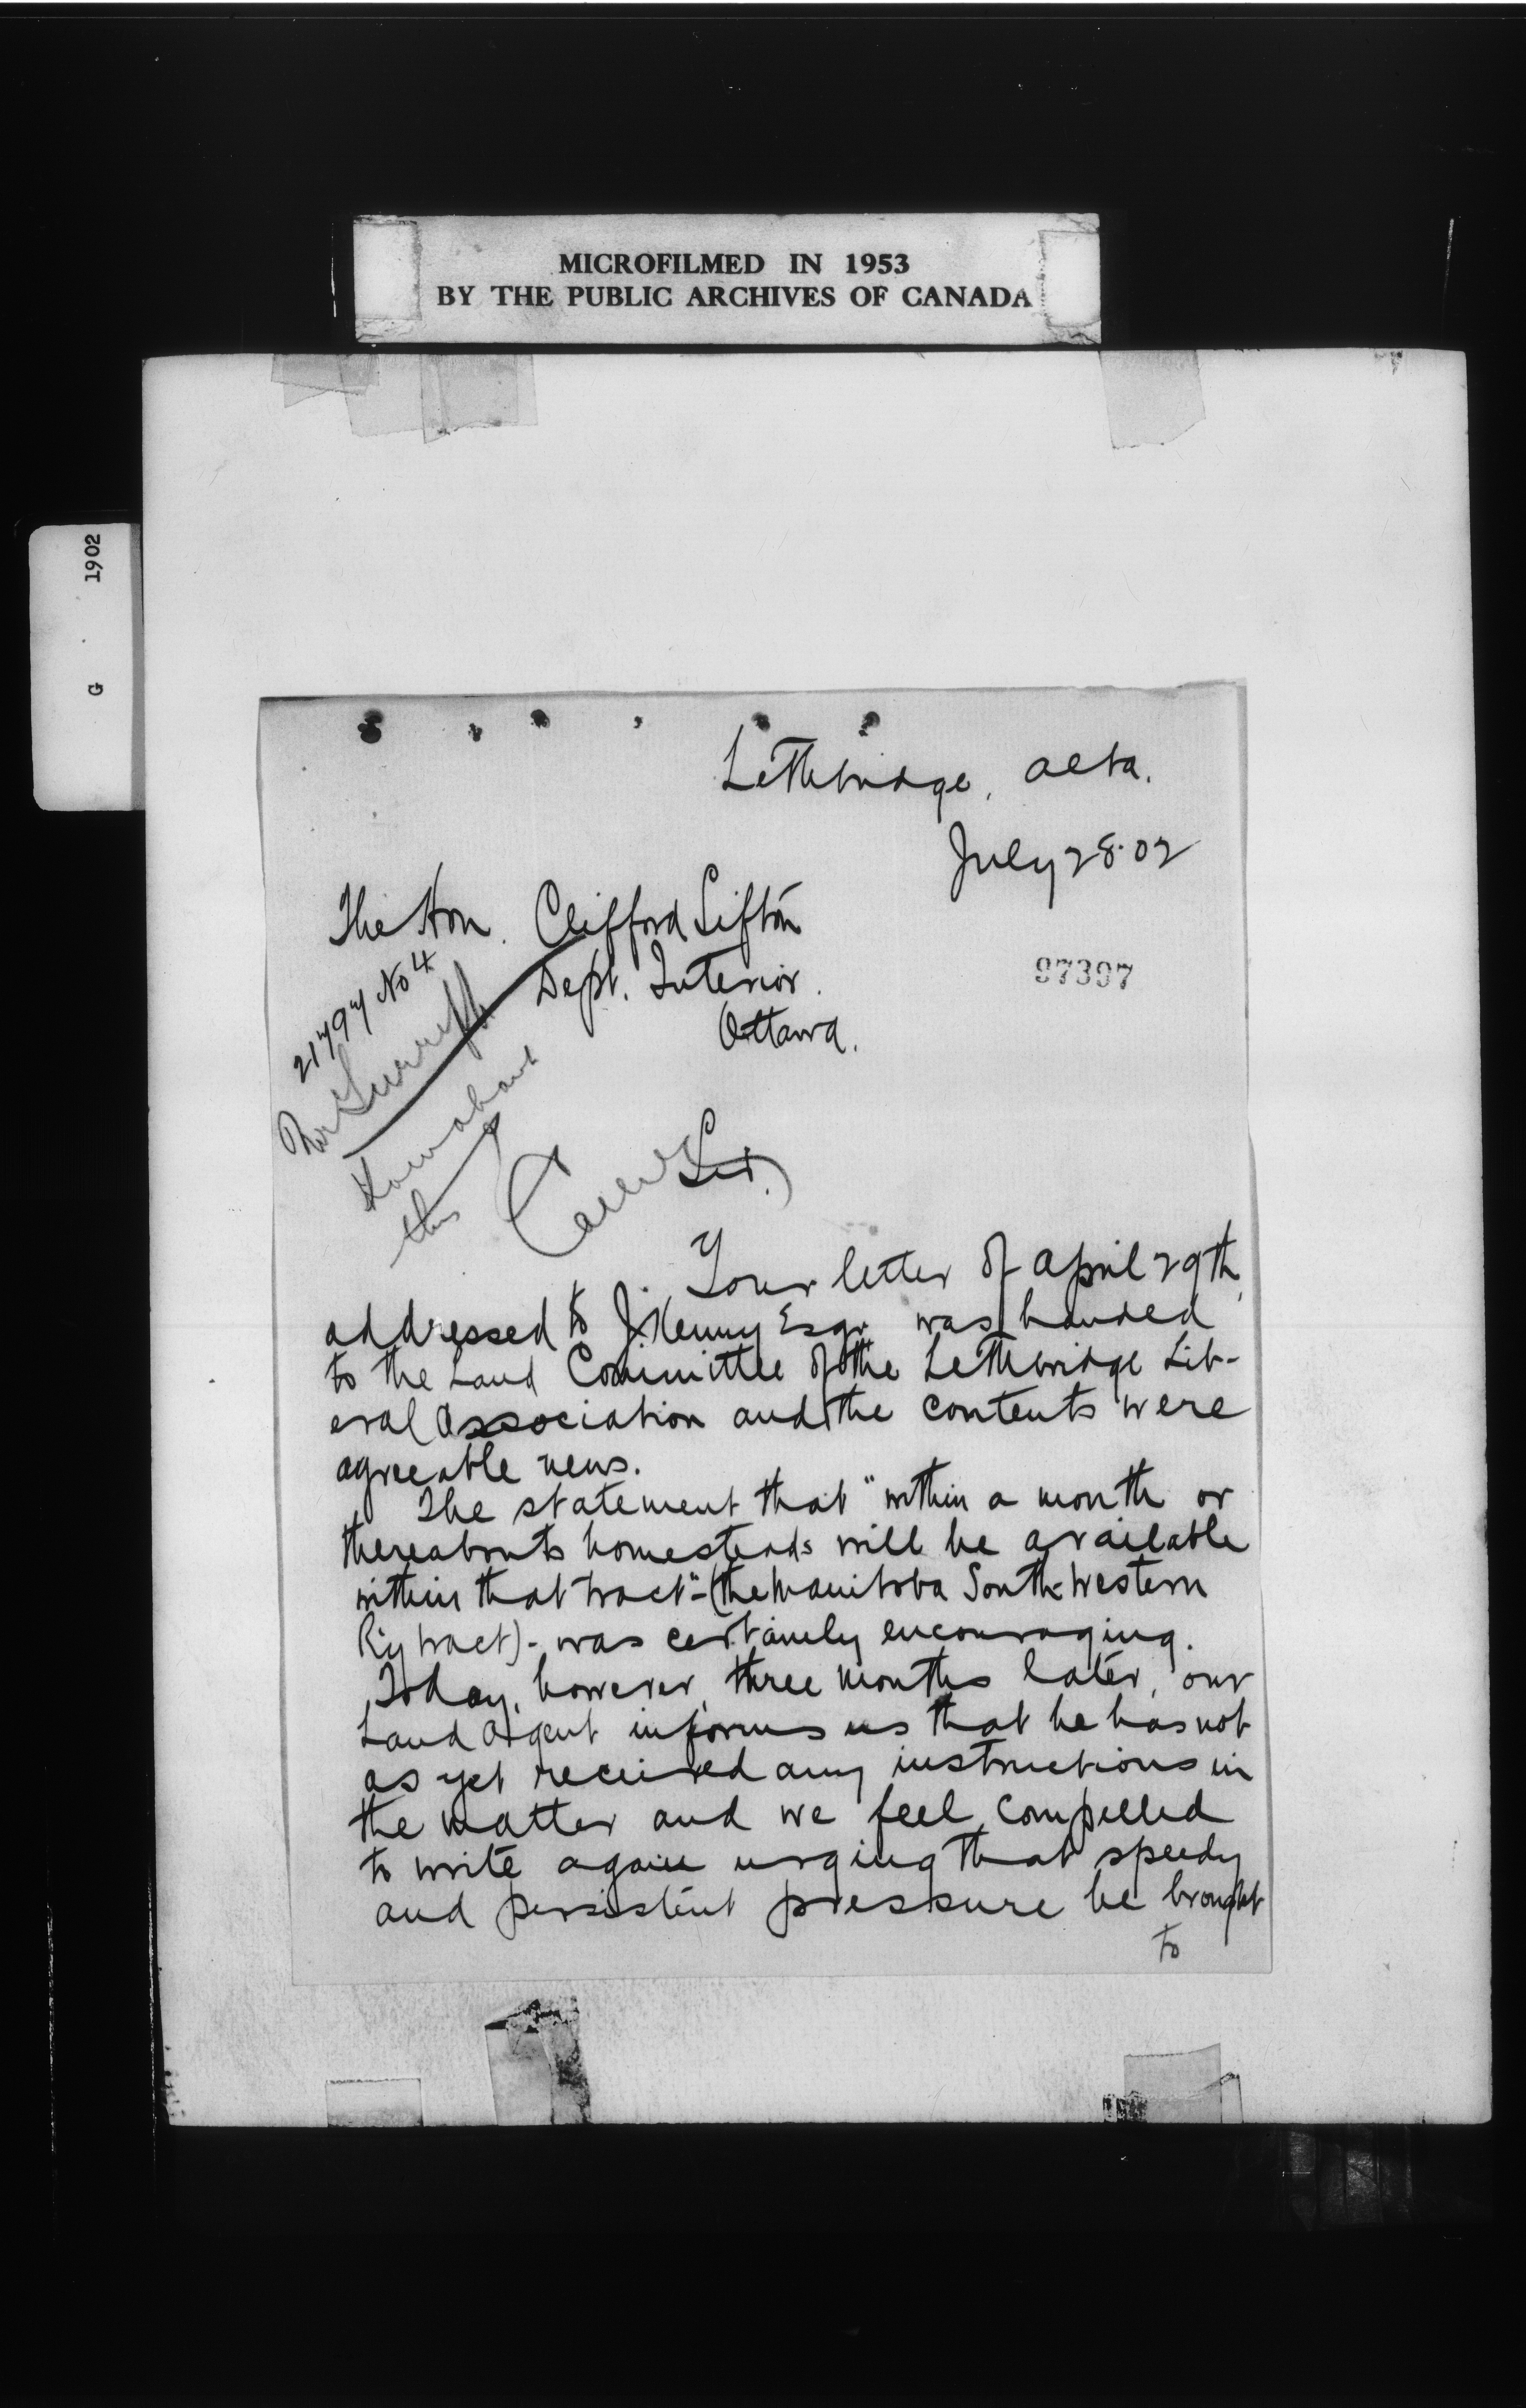 MICROFILMED IN 1953
BY THE PUBLIC ARCHIVES OF CANADA
G 1902
Lethbridge, Alta.
July 28.02
The Hon. Clifford Sifton
Dept. Interior.
Ottawa.
97397
21797 No 4
Mr
How about
this
Sir.
Your letter of April 29th,
addressed to J. Kenny Esqr. was handed
to the Land Committee of the Lethbridge Lib-
eral Association and the contents were
agreeable news.
The statement that "within a month or
thereabouts homesteads will be available
within that tract" - (the Manitoba South-Western
Ry tract) - was certainly encouraging.
Today, however, three months later, our
Land Agent informs us that he has not
as yet received any instructions in
the matter and we feel compelled
to write again urging that speedy
and persistent pressure be brought
to